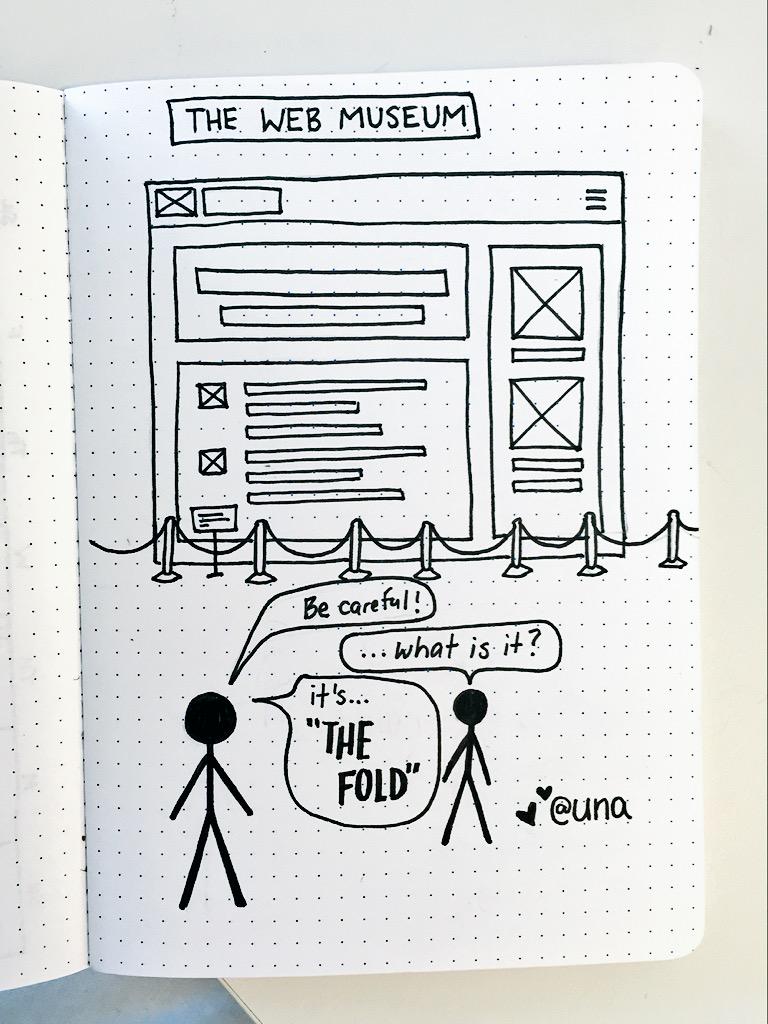 THE WEB MUSEUM
Be careful!
...what is it?
it's...
"THE
FOLD"
@una